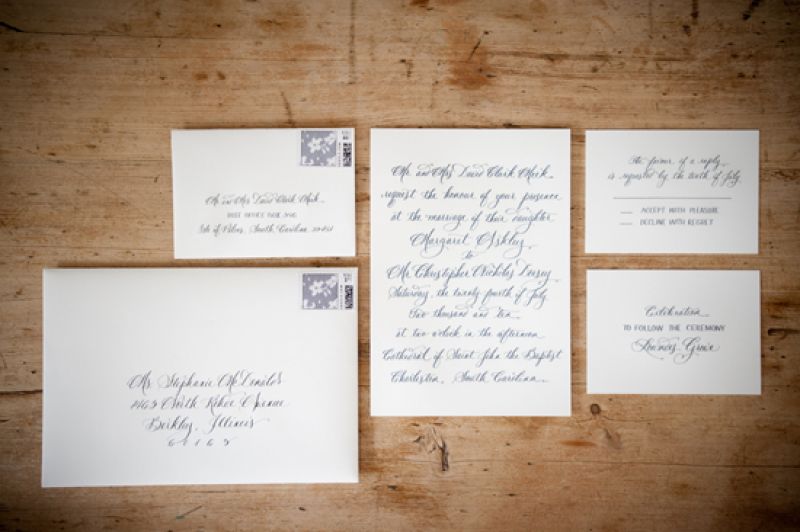 Mr. and Mrs. David Clark Mack
POST OFFICE BOX
Isle of Palms, South Carolina 29451
Ms. Stephanie McDaniels
North Kehoe Avenue
Berkley, Illinois
Mr. and Mrs. David Clark Mack
request the honour of your presence
at the marriage of their daughter
Margaret Ashley
to
Mr. Christopher Nicholas Dorsey
Saturday, the twenty-fourth of July
Two thousand and ten
at two o'clock in the afternoon
Cathedral of Saint John the Baptist
Charleston, South Carolina
The favour of a reply
is requested by the tenth of July
ACCEPT WITH PLEASURE
DECLINE WITH REGRET
Celebration
TO FOLLOW THE CEREMONY
Lowndes Grove